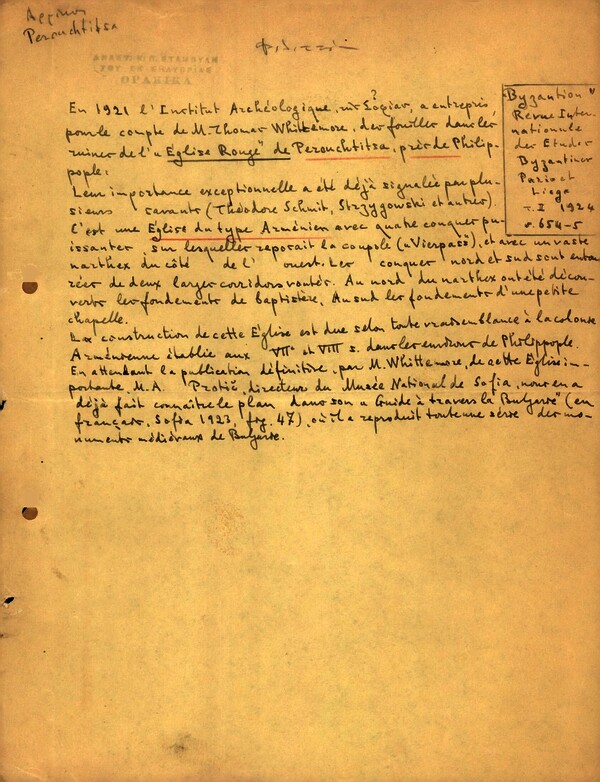 Perouchtitsa
ΘΡΑΚΙΚΑ
En 1921 l'Institut Archéologique, sis Σόφιαν, a entrepris,
?
pour le compte de M. Thomas Whittemore, des fouilles dans les
ruines de l'« Eglise Rouge" de Perouchtitsa, près de Philip-
pople:
Leur importance exceptionnelle a été déjà signalée par plu-
sieurs savants (Théodore Schmit, Strzygowski et autres).
C'est une Église du type Arménien avec quatre conques pu-
issantes sur lesquelles reposait la coupole («Vierpass), et avec un vaste
narthex du côté de l'ouest. Les conques nord et sud sont entou
rées de deux larges corridors voutés. Au nord du narthex ont été décou-
verts les fondements de baptistère, Au sud les fondements d'une petite
chapelle.
La construction de cette Église est due selon toute vraisemblance à la colonie
Arménienne établie aux VIIe et VIII s. dans les environs de Philippople.
En attendant la publication définitive, par M. Whittemore, de cette Église im-
portante, M. A. Protič, directeur du Musée National de Sofia, nous en a
déjà fait connaître le plan dans son « Guide à travers la Bulgarie" (en
français, Sofia 1923, fig. 47), où il a reproduit toute une série des mo-
numents médiévaux de Bulgarie.
Byzantion"
Revue Inter-
nationale
des Etudes
Byzantines
Paris et
Liege
τ. I 1924
σ. 654-5